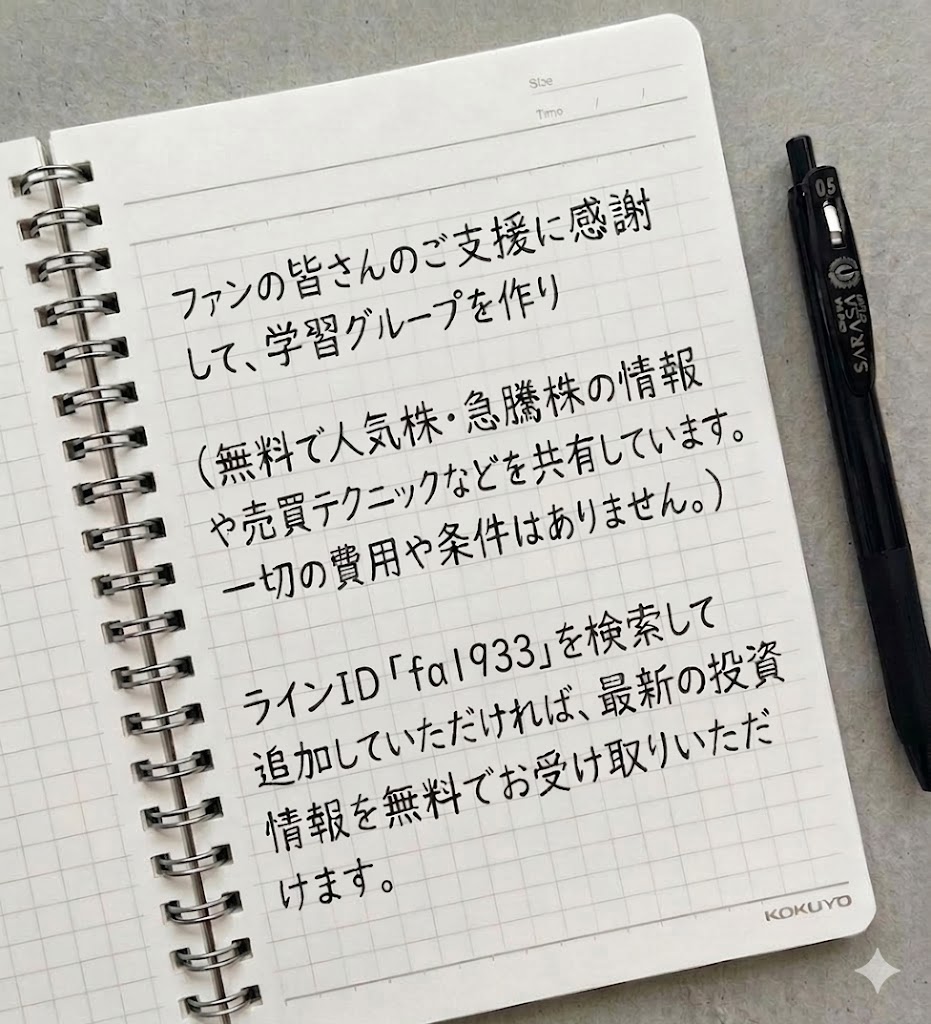 Size
Timo / /
ファンの皆さんのご支援に感謝
して、学習グループを作り
(無料で人気株・急騰株の情報
や売買テクニックなどを共有しています。
一切の費用や条件はありません。)
ラインID「fa1933」を検索して
追加していただければ、最新の投資
情報を無料でお受け取りいただ
けます。
KOKUYO
05
SARA